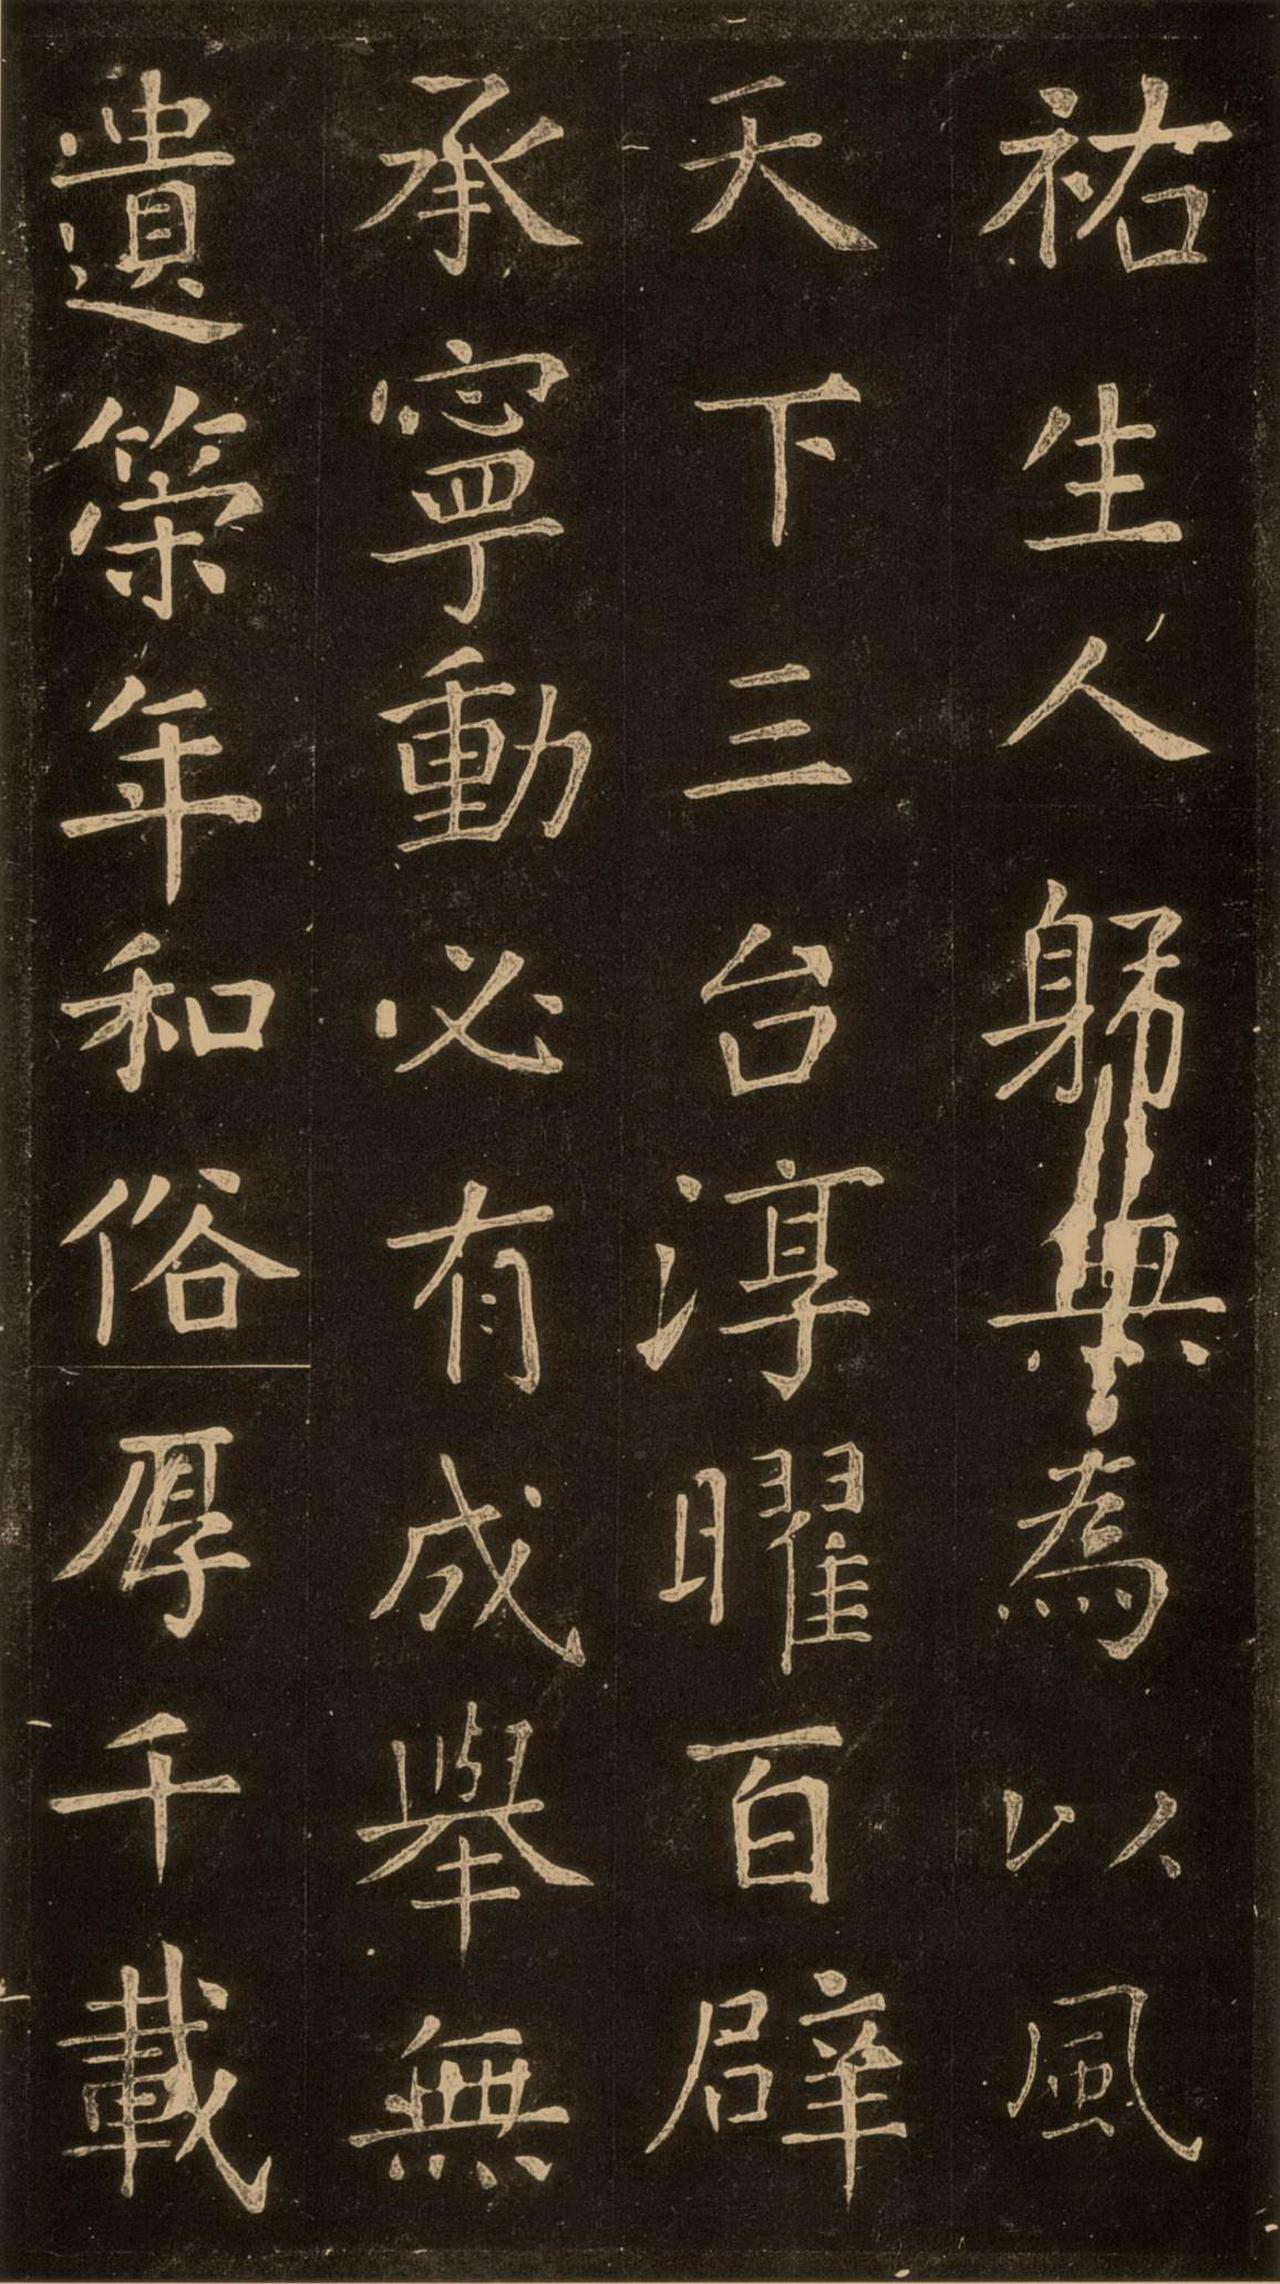 祐生人躬為以風
天下三台淳曜百辟
承寧動必有成舉無
遺策年和俗厚千載